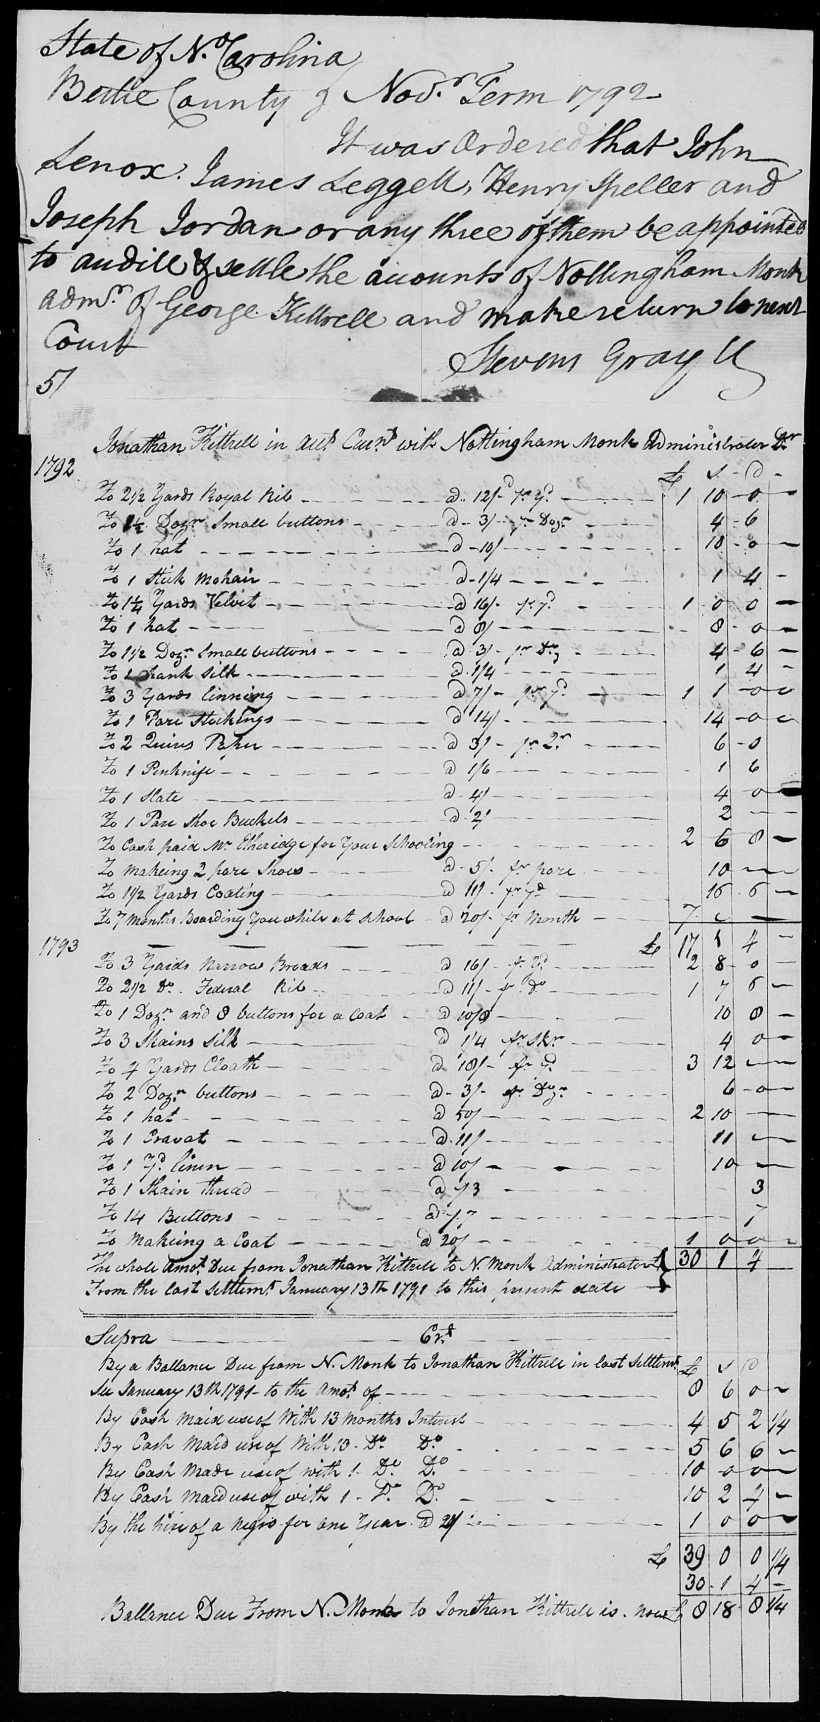 State of No. Carolina
Bertie County } Novr. Term 1792
It was Ordered that John
Lenox. James Leggett, Henry Speller and
Joseph Jordan or any three of them be appointed
to audit & settle the accounts of Nottingham Monk
admr. of George Kittrell and make return to next
Court
Stevens Gray
5/
Jonathan Kittrell in acct. Curnt. with Nottingham Monk administrator Dr.
1792 £ s d
To 2 1/2 Yards Royal Rib a 12/- pr yd 1 10 0
To 1 1/2 Dozn. Small buttons a 3/- pr Dozn 4 6
To 1 hat a 10/ 10 0
To 1 Stick Mohair a 1/4 1 4
To 1 1/4 Yards Velvit a 16/- pr yd 1 0 0
To 1 hat a 8/ 8 0
To 1 1/2 Dozn. Small buttons a 3/- pr Dozn 4 6
To 1 hank Silk a 1/4 1 4
To 3 Yards linning a 7/- pr yd 1 1 0
To 1 Pare Stockings a 14/- 14 0
To 2 Quires Paper a 3/- pr Qr 6 0
To 1 Penknife a 1/6 1 6
To 1 Slate a 4/ 4 0
To 1 Pare Shoe Buckels a 2/ 2
To Cash paid Mr. Etheridge for Your Schooling 2 6 8
To makeing 2 pare Shoes a 5/- pr pare 10
To 1 1/2 Yards Coating a 11/- pr yd 16 6
To 7 months Boarding You while at School a 20/- pr Month 7
1793 £ 17 1 4
To 3 Yards Narrow Broads a 16/- pr yd. 2 8 0
To 2 1/2 Do. Federal Rib a 11/- pr do 1 7 6
To 1 Dozn and 8 buttons for a Coat a 10/8 10 8
To 3 Skains Silk a 1/4 pr Skn 4 0
To 4 Yards Cloath a 18/- pr yd. 3 12
To 2 Dozn buttons a 3/- pr Dozn. 6 0
To 1 hat a 50/ 2 10
To 1 Cravat a 11/ 11
To 1 Yd linen a 10/ 10
To 1 Skain thread a /3 3
To 14 Buttons a /7 7
To Makeing a Coat a 20/ 1 0 0
The whole Amot. Due from Jonathan Kittrell to N Monk Administrator £ 30 1 4
From the last Settlemt. January 13th 1791 to this present date
Supra Crt.
By a Ballance Due from N. Monk to Jonathan Kittrell in last Settlemt. £ s d
See January 13th 1791 to the Amot. of 8 6 0
By Cash Maid use of With 13 Months Interest 4 5 2 1/4
By Cash Maid use of With 13 Do. Do 5 6 6
By Cash Made use of with 1 Do. Do. 10 0 0
By Cash Maid use of with 1 Do Do. 10 2 4
By the hire of a negro for one Year a 20/ 1 0 0
£ 39 0 0 1/4
30 1 4
Ballance Due From N. Monk to Jonathan Kittrell is now £ 8 18 8 1/4